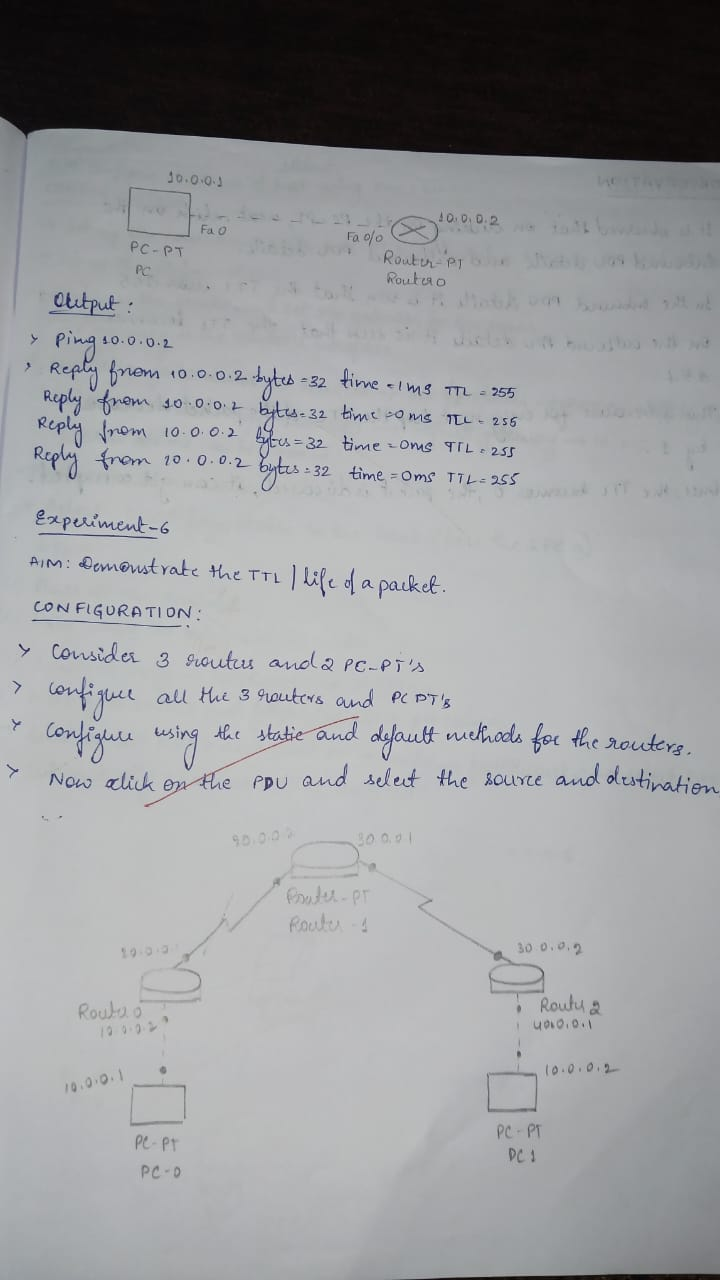 10.0.0.1
10.0.0.2
Fa0
Fa0/0
PC-PT
PC
Router-PT
Router0
Output:
> Ping 10.0.0.2
> Reply from 10.0.0.2 bytes=32 time=1ms TTL=255
Reply from 10.0.0.2 bytes=32 time=0ms TTL=255
Reply from 10.0.0.2 bytes=32 time=0ms TTL=255
Reply from 10.0.0.2 bytes=32 time=0ms TTL=255
Experiment-6
AIM: Demonstrate the TTL | life of a packet.
CONFIGURATION:
> Consider 3 routers and 2 PC-PT's
> Configure all the 3 routers and PC PT's
> Configure using the static and default methods for the routers.
> Now click on the PDU and select the source and destination
30.0.0.1
Router-PT
Router-1
30.0.0.2
Router0
10.0.0.2
Router 2
40.0.0.1
10.0.0.1
10.0.0.2
PC-PT
PC-0
PC-PT
PC1